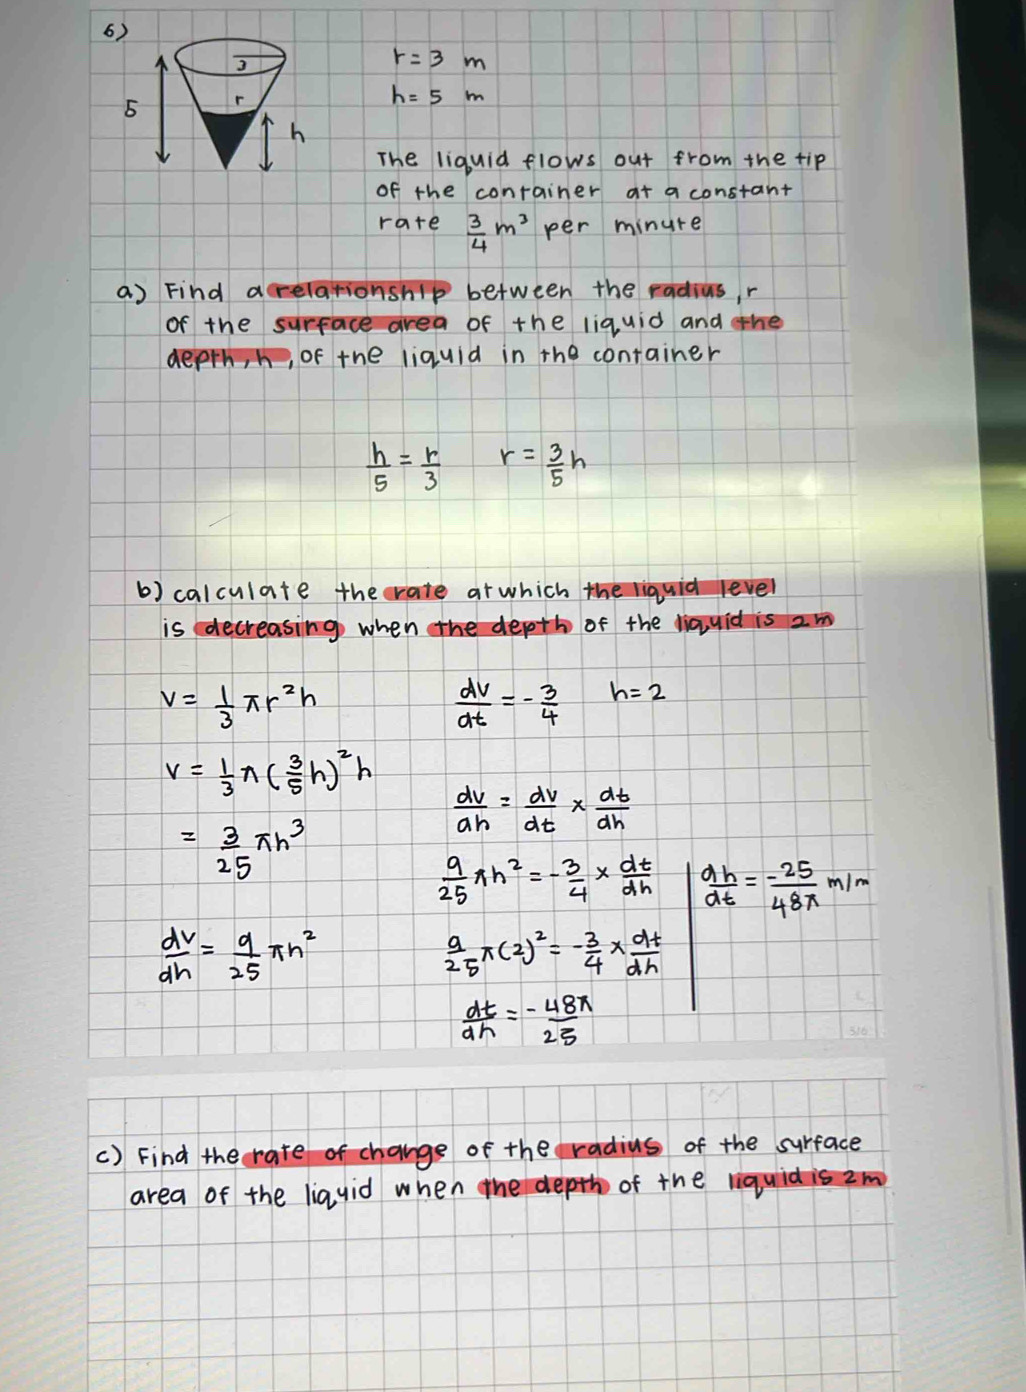 6)
3
r
5
h
r = 3 m
h = 5 m
The liquid flows out from the tip
of the container at a constant
rate 3/4 m³ per minute
a) Find a relationship between the radius, r
of the surface area of the liquid and the
depth, h, of the liquid in the container
h/5 = r/3    r = 3/5 h
b) calculate the rate at which the liquid level
is decreasing when the depth of the liquid is 2m
V = 1/3 πr²h    dv/dt = -3/4    h = 2
V = 1/3 π(3/5 h)²h
dv/dh = dv/dt × dt/dh
= 3/25 πh³
9/25 πh² = -3/4 × dt/dh    dh/dt = -25/48π m/m
dv/dh = 9/25 πh²    9/25 π(2)² = -3/4 × dt/dh
dt/dh = -48π/25
c) Find the rate of change of the radius of the surface
area of the liquid when the depth of the liquid is 2m